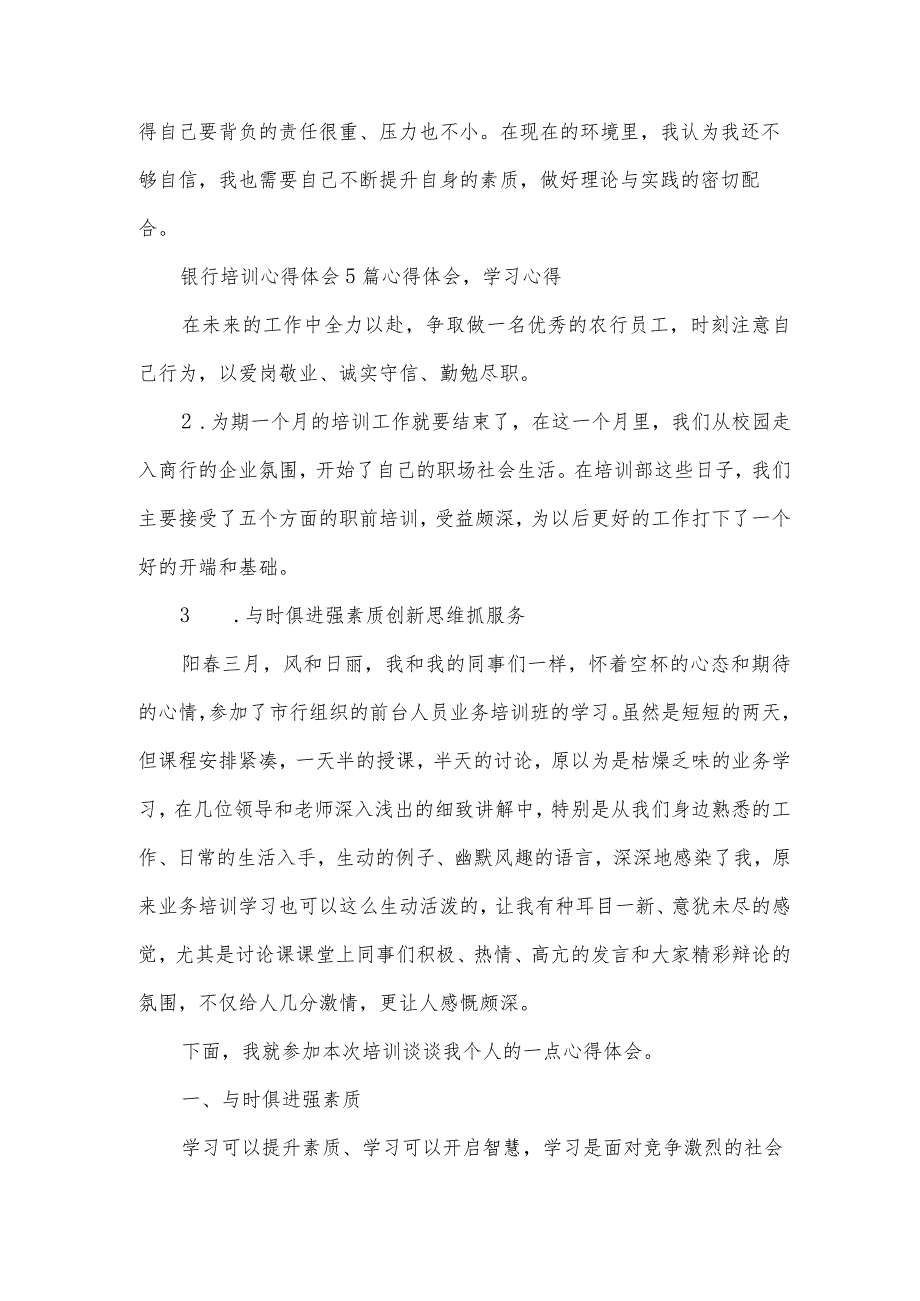 得自己要背负的责任很重、压力也不小。在现在的环境里，我认为我还不
够自信，我也需要自己不断提升自身的素质，做好理论与实践的密切配
合。
银行培训心得体会5篇心得体会，学习心得
在未来的工作中全力以赴，争取做一名优秀的农行员工，时刻注意自
己行为，以爱岗敬业、诚实守信、勤勉尽职。
2.为期一个月的培训工作就要结束了，在这一个月里，我们从校园走
入商行的企业氛围，开始了自己的职场社会生活。在培训部这些日子，我们
主要接受了五个方面的职前培训，受益颇深，为以后更好的工作打下了一个
好的开端和基础。
3 .与时俱进强素质创新思维抓服务
阳春三月，风和日丽，我和我的同事们一样，怀着空杯的心态和期待
的心情，参加了市行组织的前台人员业务培训班的学习。虽然是短短的两天，
但课程安排紧凑，一天半的授课，半天的讨论，原以为是枯燥乏味的业务学
习，在几位领导和老师深入浅出的细致讲解中，特别是从我们身边熟悉的工
作、日常的生活入手，生动的例子、幽默风趣的语言，深深地感染了我，原
来业务培训学习也可以这么生动活泼的，让我有种耳目一新、意犹未尽的感
觉，尤其是讨论课课堂上同事们积极、热情、高亢的发言和大家精彩辩论的
氛围，不仅给人几分激情，更让人感慨颇深。
下面，我就参加本次培训谈谈我个人的一点心得体会。
一、与时俱进强素质
学习可以提升素质、学习可以开启智慧，学习是面对竞争激烈的社会